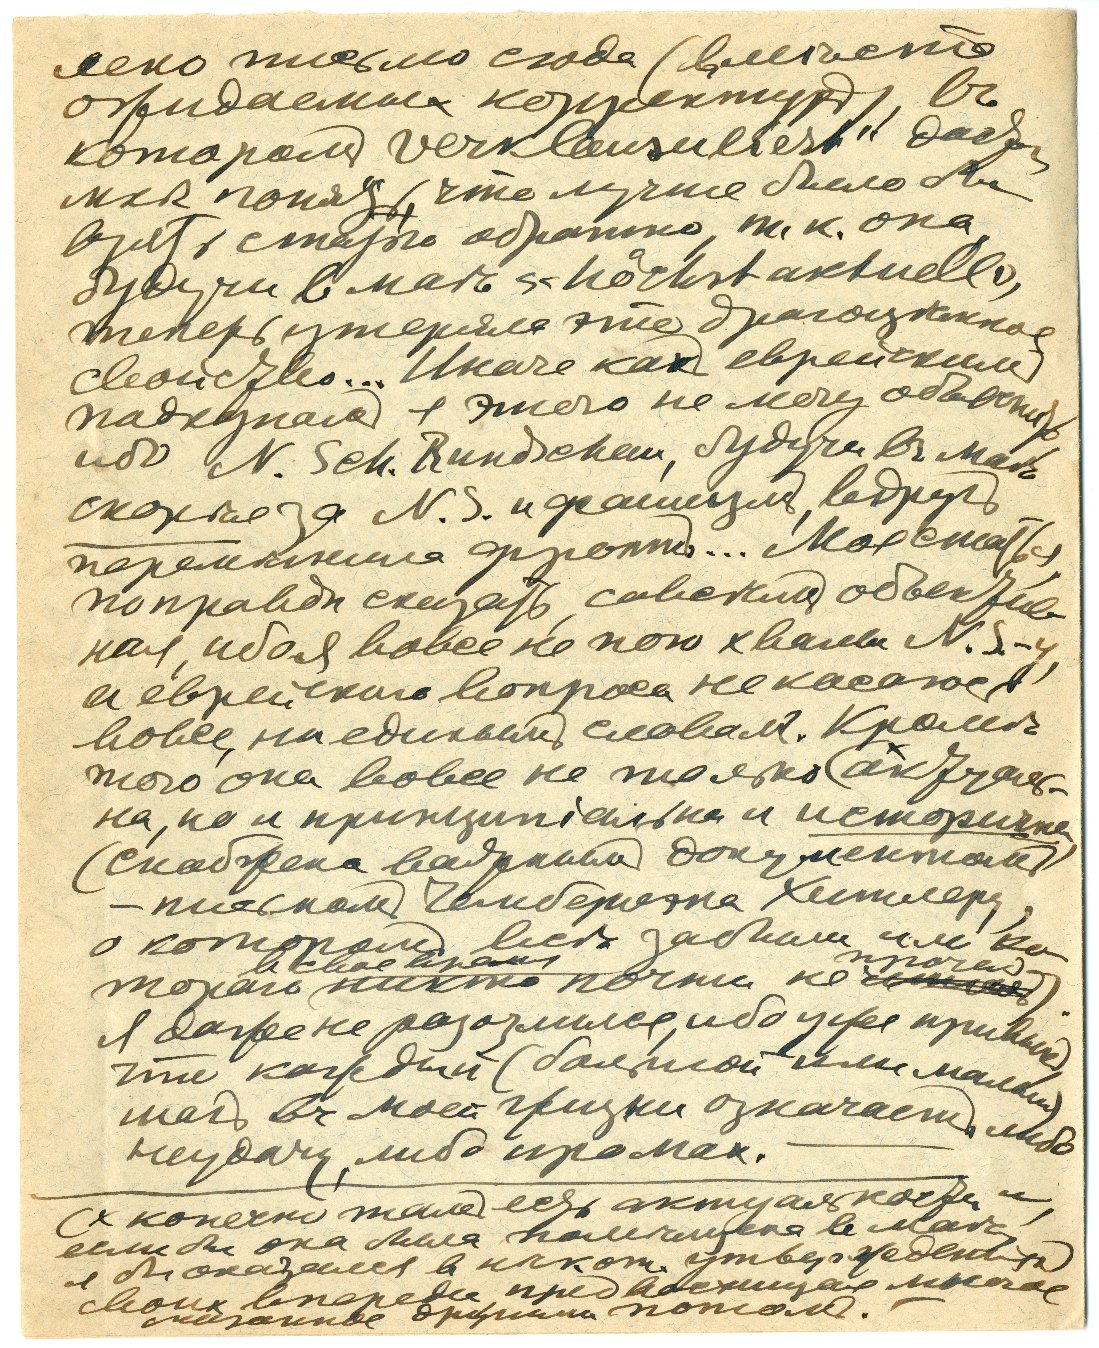 лено письмо сюда (вмѣсто
ожидаемых корректуръ), въ
которомъ "verklausuliert" даютъ
мнѣ понять, что лучше было бы
взять статью обратно, т.к. она,
будучи в маѣ "höchst aktuell",
теперь утеряла это драгоцѣнное
свойство... Иначе какъ еврейскимъ
подкупомъ я этого не могу объяснить,
ибо N. Sch. Rundschau, будучи въ маѣ
скорѣе за N.S. и фашизмъ, вдругъ
перемѣнила фронтъ... Моя статья,
поправди сказать, совсѣмъ объектив-
ная, ибо я вовсе не пою хвалы N.S.-у,
а еврейскаго вопроса не касаюсь
вовсе, ни единымъ словомъ. Кромѣ
того она вовсе не только (x актуаль-
на, но и принципіальна и исторична
(снабжена важнымъ документомъ
– письмомъ Чемберлэна Хитлеру,
о которомъ всѣ забыли или ко-
тораго в свое время никто почти не прочелъ).
Я даже не разозлился, ибо уже привыкъ,
что каждый (большой или малый)
шагъ въ моей жизни означаетъ либо
неудачу, либо промах. —
(x конечно тамъ есть актуальности и,
если бы она была помѣщена в маѣ,
я бы оказался в нѣкот. утвержденіяхъ
своих впереди, предвосхищая многое
сказанное другими потомъ. –